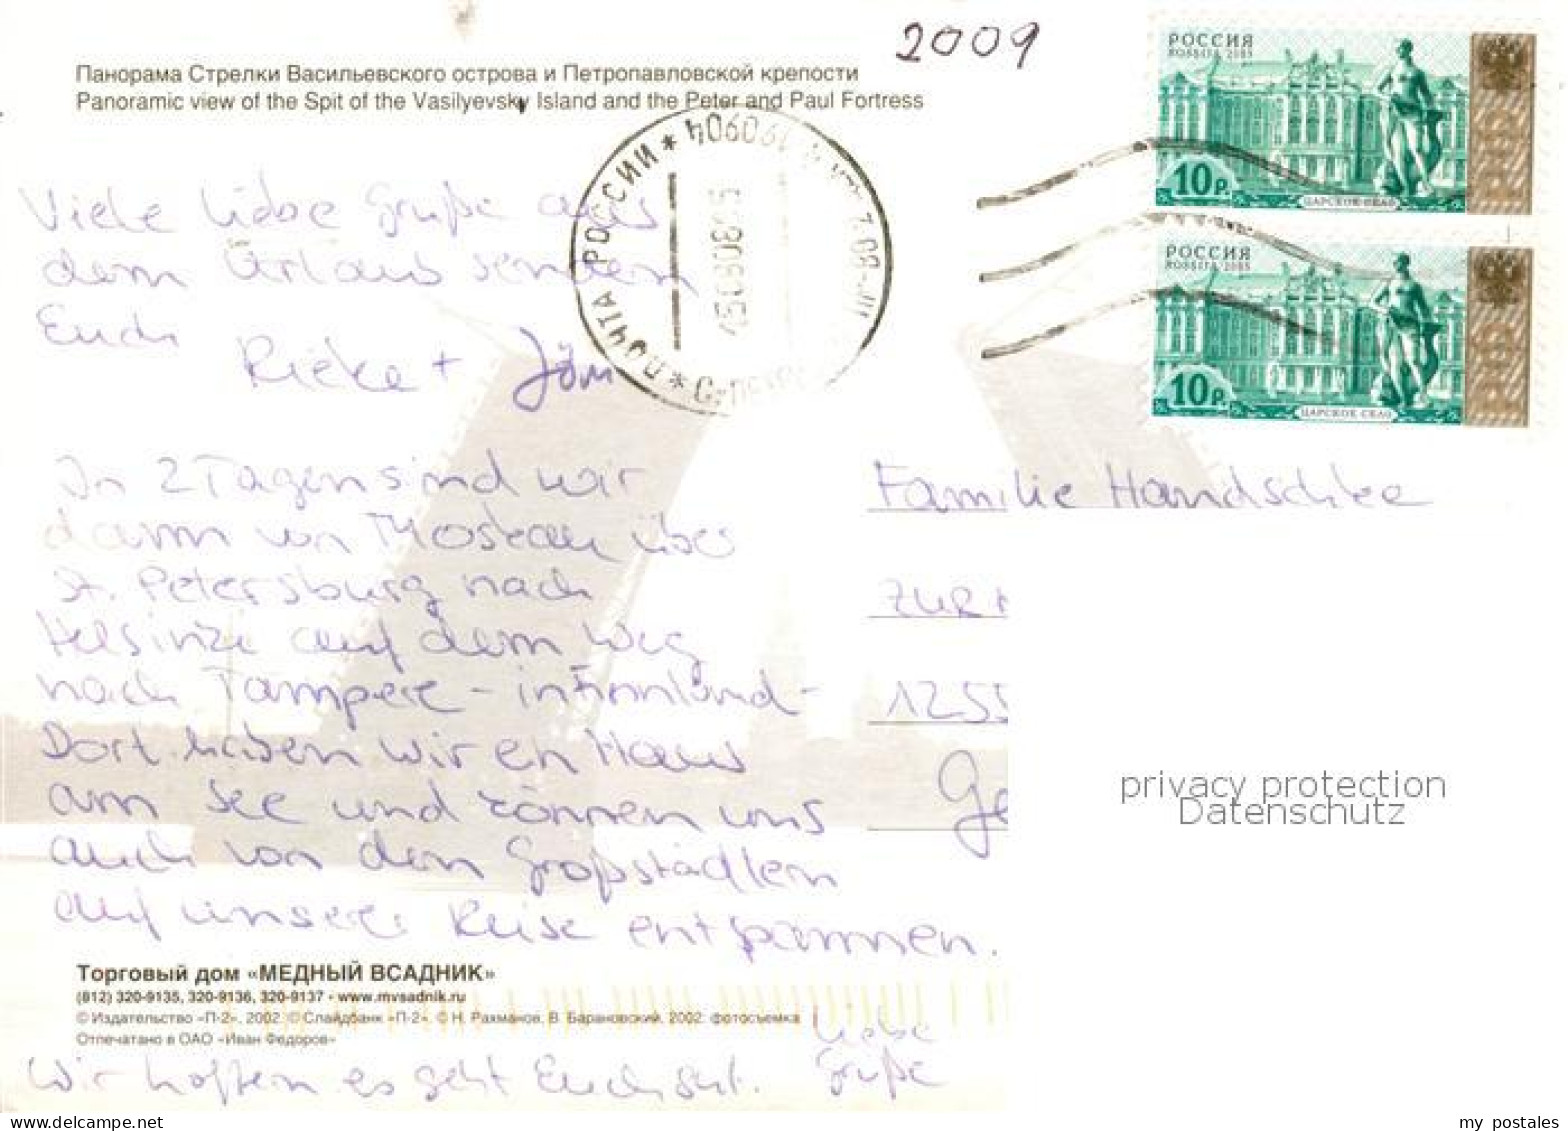 2009
Панорама Стрелки Васильевского острова и Петропавловской крепости
Panoramic view of the Spit of the Vasilyevsky Island and the Peter and Paul Fortress
РОССИЯ
ROSSIJA 2003
10 Р.
ЦАРСКОЕ СЕЛО
РОССИЯ
ROSSIJA 2003
10 Р.
ЦАРСКОЕ СЕЛО
ПОЧТА РОССИИ
Viele liebe Grüße aus
dem Urlaub senden
Euch
Rieke + Jörn
In 2 Tagen sind wir
dann von Moskau über
St. Petersburg nach
Helsinki auf dem Weg
nach Tampere - in Finnland -
Dort haben wir ein Haus
am See und können uns
auch von den Großstädten
auf unserer Reise entspannen.
Familie Handschke
1255
Ge
privacy protection
Datenschutz
Торговый дом «МЕДНЫЙ ВСАДНИК»
(812) 320-9135, 320-9136, 320-9137 - www.mvsadnik.ru
© Издательство «П-2», 2002 © Слайдбанк «П-2», © Н. Рахманов, В. Барановский, 2002: фотосъемка
Отпечатано в ОАО «Иван Федоров»
Wir hoffen es geht Euch gut.
Liebe
Grüße
my postales